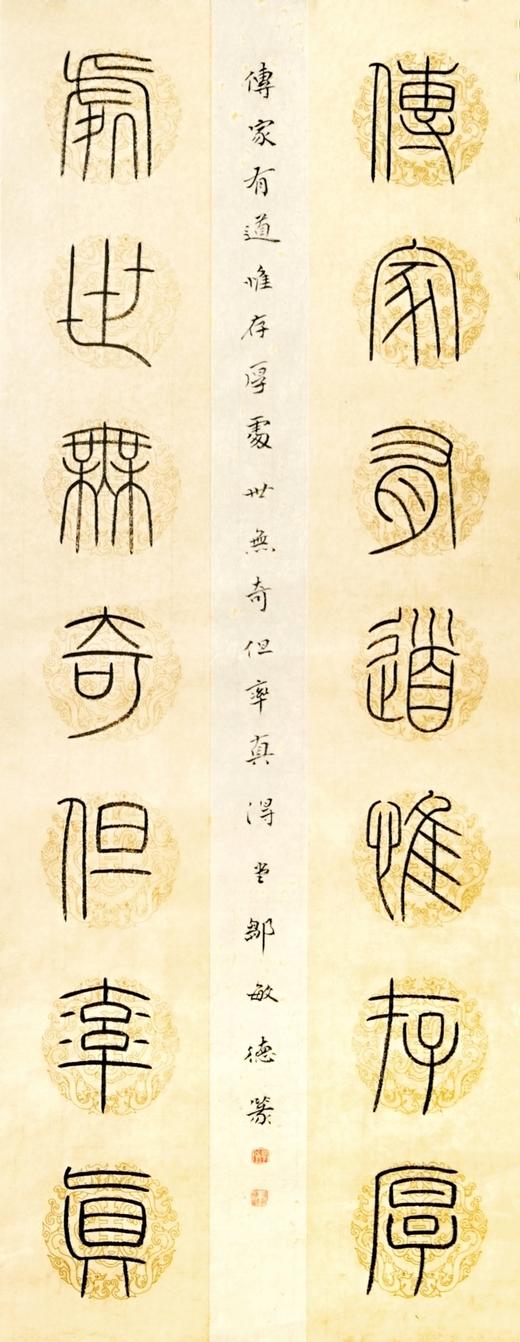 傳家有道惟存厚
傳家有道惟存厚處世無奇但率真得堂鄒敏德篆
處世無奇但率真